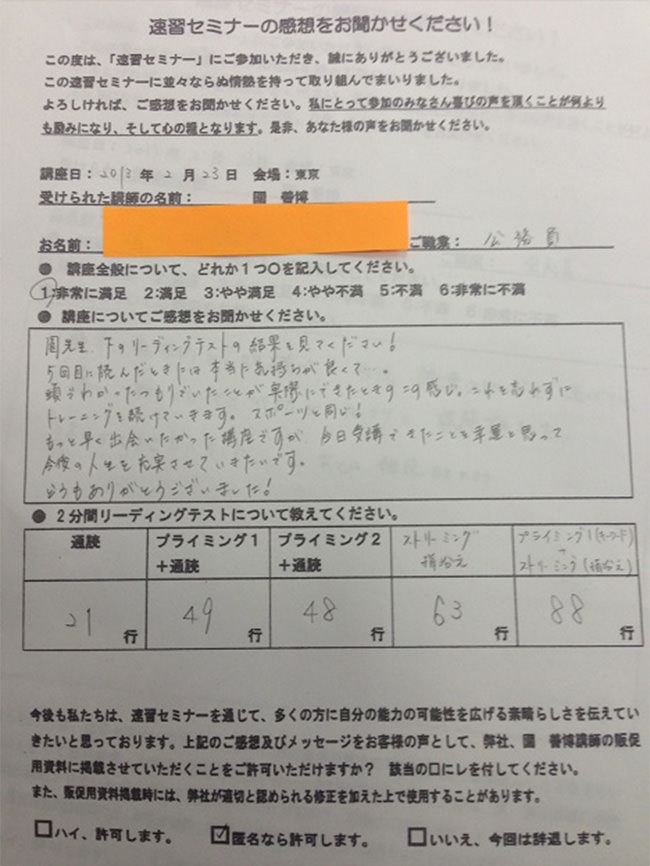 速習セミナーの感想をお聞かせください！
この度は、「速習セミナー」にご参加いただき、誠にありがとうございました。
この速習セミナーに並々ならぬ情熱を持って取り組んでまいりました。
よろしければ、ご感想をお聞かせください。私にとって参加のみなさん喜びの声を頂くことが何より
も励みになり、そして心の糧となります。是非、あなた様の声をお聞かせください。
講座日：2013 年 2 月 23 日 会場：東京
受けられた講師の名前： 園 善博
お名前： ご職業： 公務員
● 講座全般について、どれか１つ○を記入してください。
1:非常に満足 2:満足 3:やや満足 4:やや不満 5:不満 6:非常に不満
● 講座についてご感想をお聞かせください。
園先生、下のリーディングテストの結果を見てください！
5回目に読んだときには本当に気持ちが良くて…。
頭でわかったつもりでいたことが実際にできたときのこの感じ。これを忘れずに
トレーニングを続けていきます。スポーツと同じ！
もっと早く出会いたかった講座ですが、今日受講できたことを幸運と思って
今後の人生を充実させていきたいです。
どうもありがとうございました！
● ２分間リーディングテストについて教えてください。
通読 プライミング１ プライミング２ ストリーミング プライミング1(キーワード)
+通読 +通読 指沿え ストリーミング(指沿え)
21 行 49 行 48 行 63 行 88 行
今後も私たちは、速習セミナーを通じて、多くの方に自分の能力の可能性を広げる素晴らしさを伝えてい
きたいと思っております。上記のご感想及びメッセージをお客様の声として、弊社、園 善博講師の販促
用資料に掲載させていただくことをご許可いただけますか？ 該当の口にレを付してください。
また、販促用資料掲載時には、弊社が適切と認められる修正を加えた上で使用することがあります。
□ハイ、許可します。 ☑匿名なら許可します。 □いいえ、今回は辞退します。